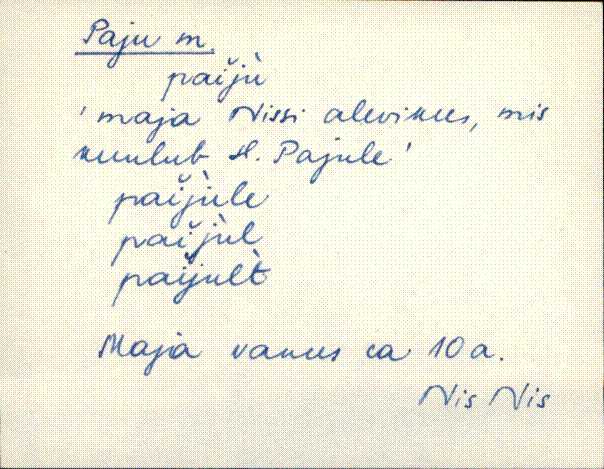 Paju m.
paiju
'maja Nissi alevikus, mis
kuulub H. Pajule'
paijule
paijul
paijult
Maja vanus ca 10 a.
Nis Nis